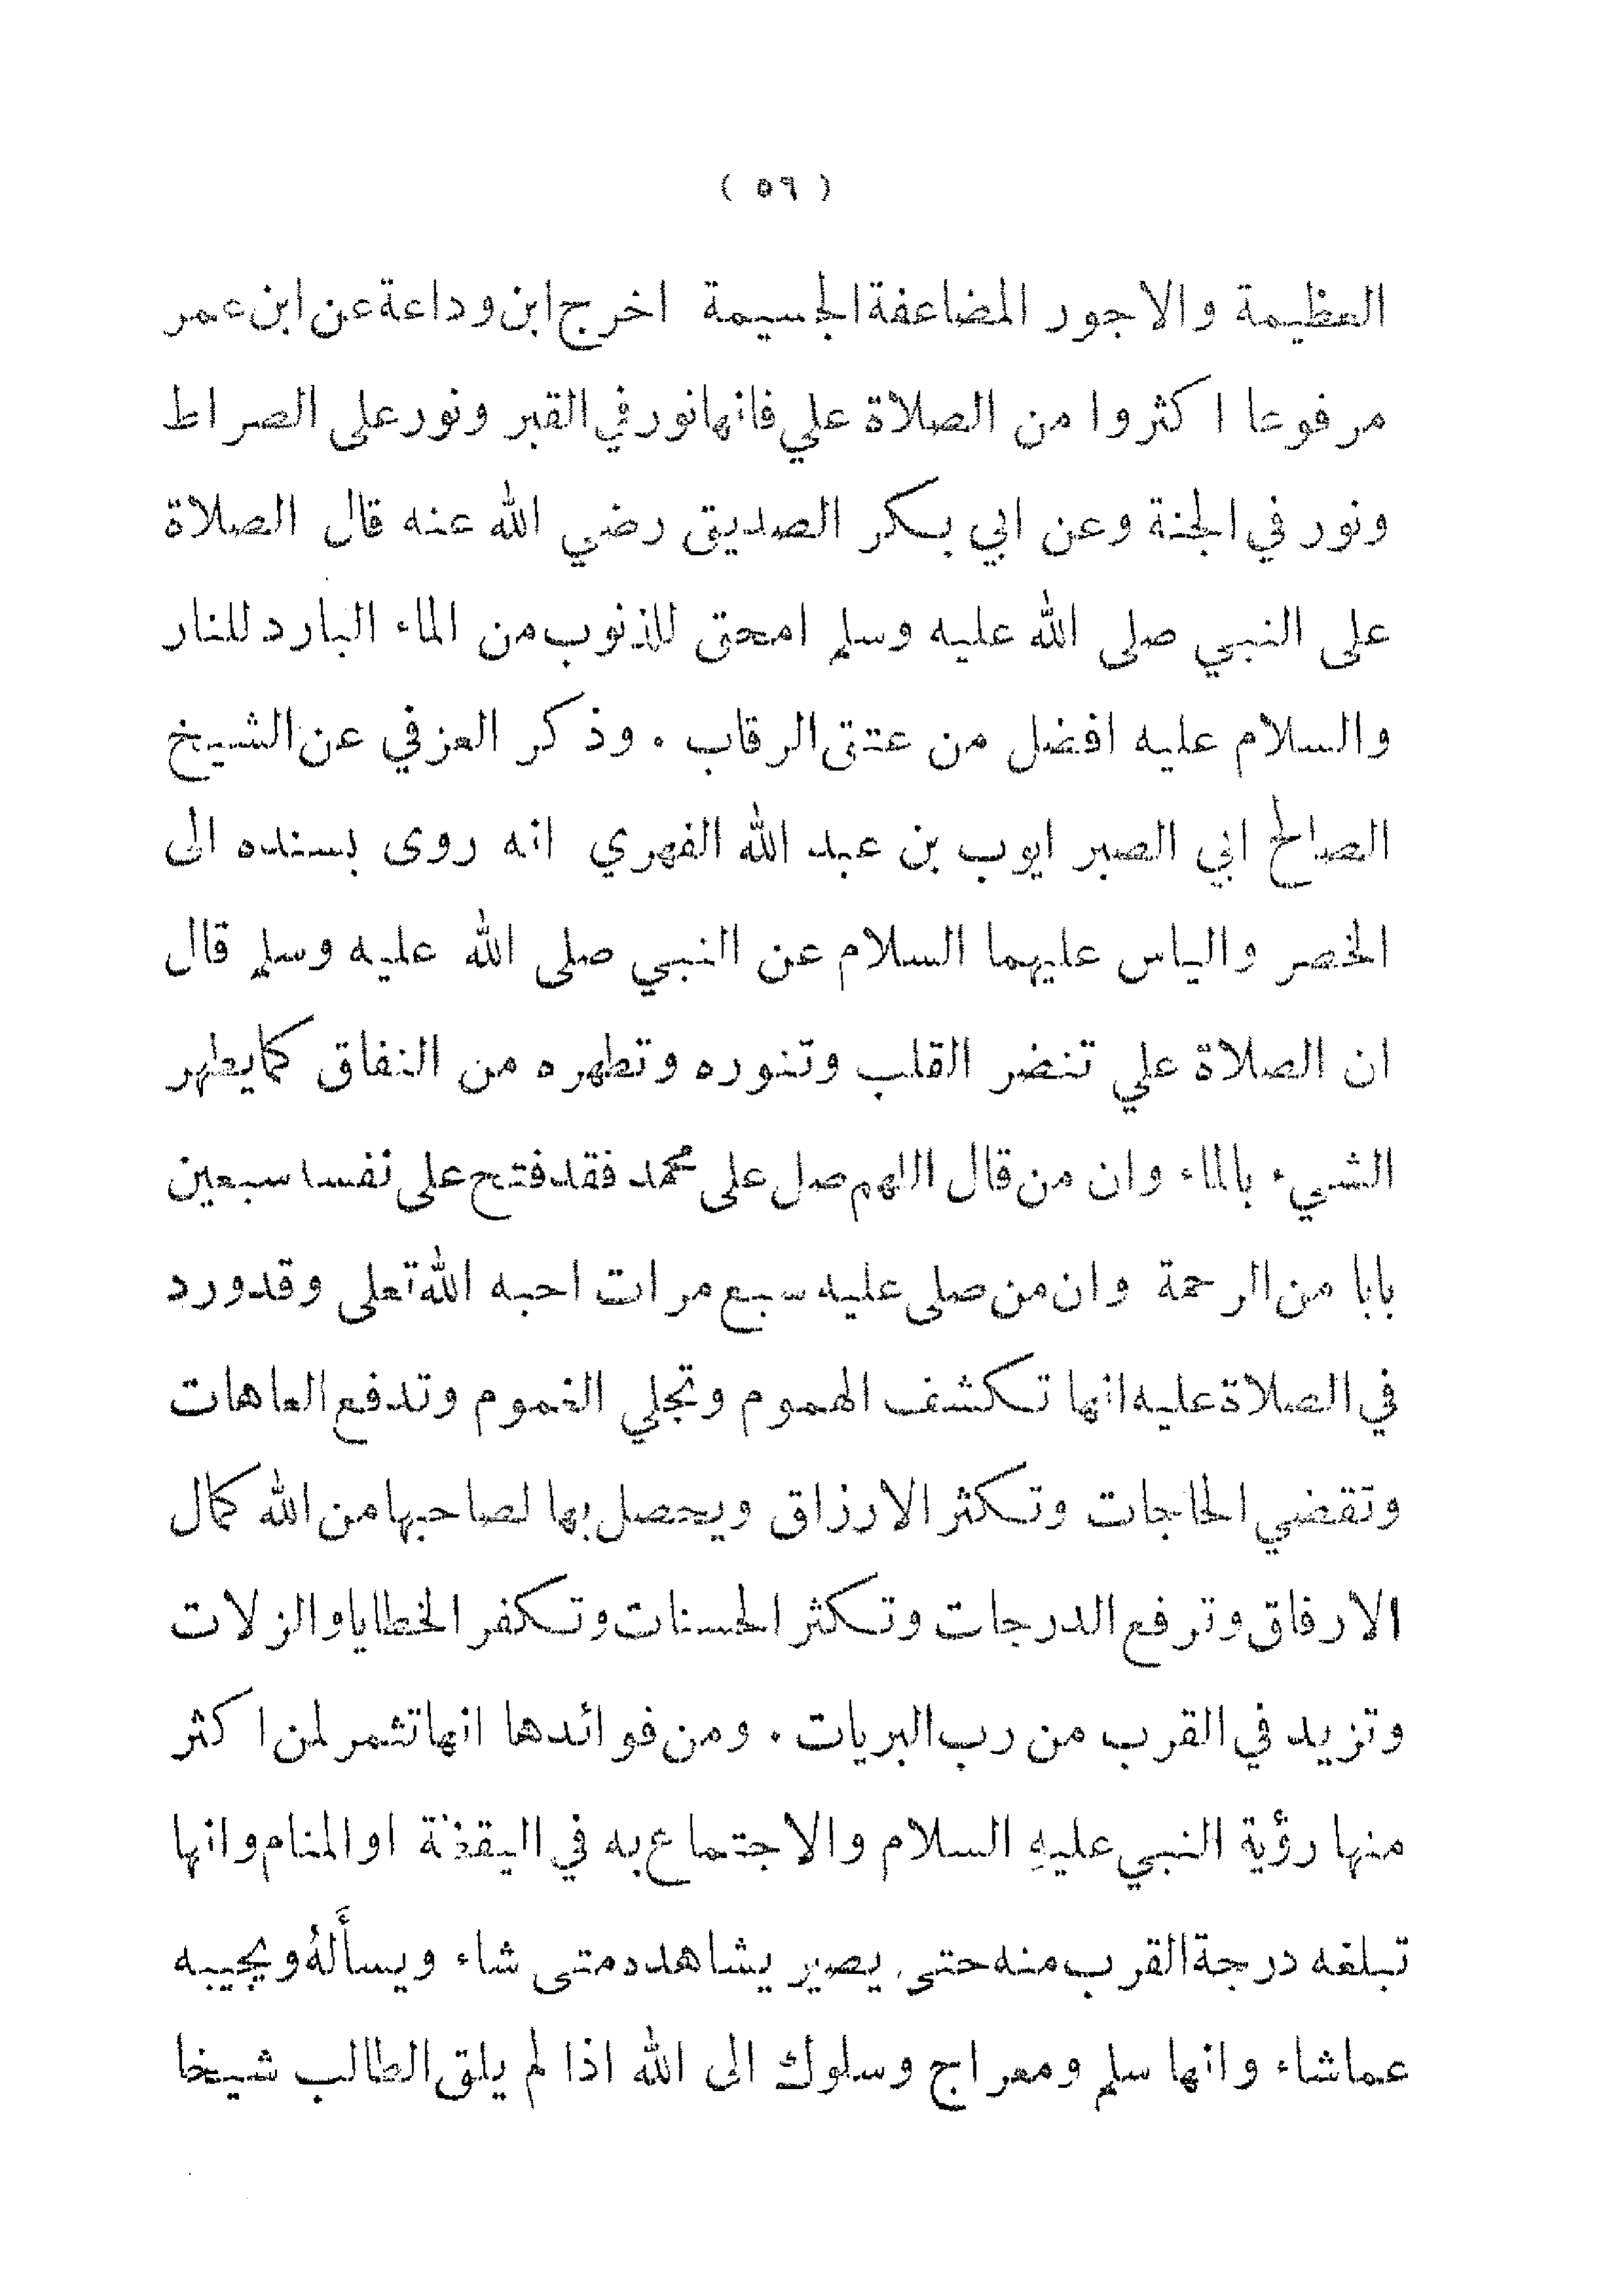 ( ٥٩ )
العظيمة والاجور المضاعفة الجسيمة اخرج ابن وداعة عن ابن عمر
مرفوعا اكثروا من الصلاة علي فانها نور في القبر ونور على الصراط
ونور في الجنة وعن ابي بكر الصديق رضي الله عنه قال الصلاة
على النبي صلى الله عليه وسلم امحق للذنوب من الماء البارد للنار
والسلام عليه افضل من عتق الرقاب . وذكر العزفي عن الشيخ
الصالح ابي الصبر ايوب بن عبد الله الفهري انه روى بسنده الى
الخصر والياس عليهما السلام عن النبي صلى الله عليه وسلم قال
ان الصلاة علي تنضر القلب وتنوره وتطهره من النفاق كما يطهر
الشيء بالماء وان من قال اللهم صل على محمد فقد فتح على نفسا سبعين
بابا من الرحمة وان من صلى عليه سبع مرات احبه الله تعلى وقد ورد
في الصلاة عليه انها تكشف الهموم وتجلي الغموم وتدفع العاهات
وتقضي الحاجات وتكثر الارزاق ويحصل بها لصاحبها من الله كمال
الارفاق وترفع الدرجات وتكثر الحسنات وتكفر الخطايا والزلات
وتزيد في القرب من رب البريات . ومن فوائدها انها تثمر لمن اكثر
منها رؤية النبي عليهِ السلام والاجتماع به في اليقظة او المنام وانها
تبلغه درجة القرب منه حتى يصير يشاهده متى شاء ويسأَلهُ ويجيبه
عما شاء وانها سلم ومعراج وسلوك الى الله اذا لم يلق الطالب شيخا